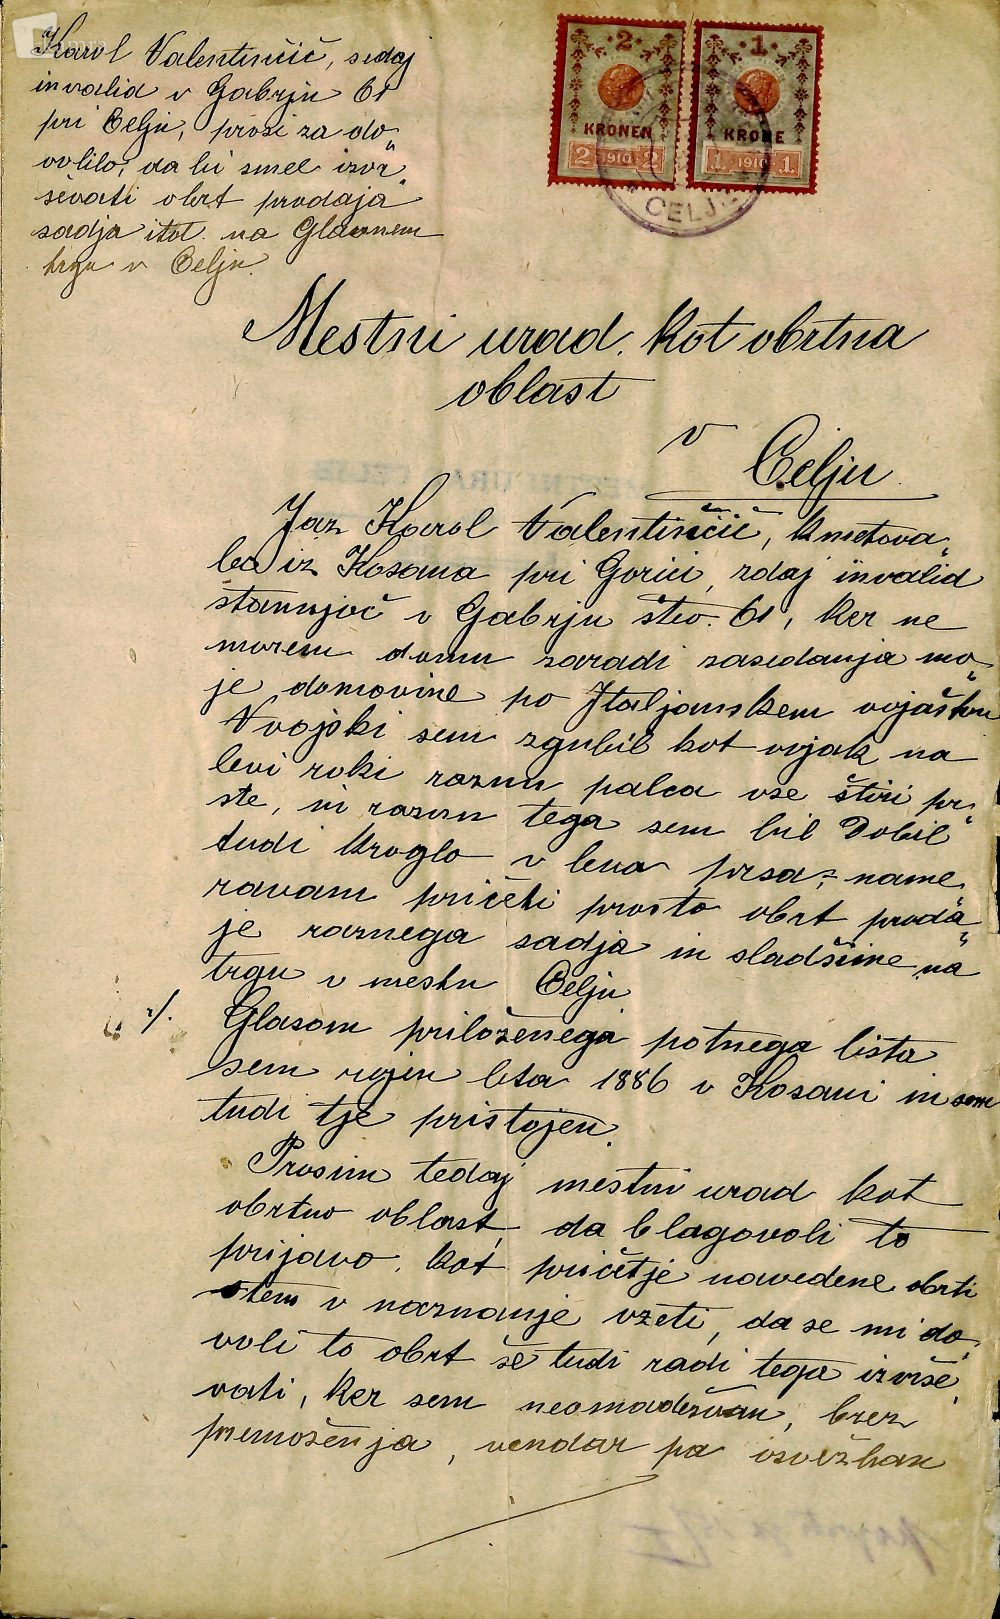 Karol Valentinčič, sedaj
invalid v Gabrju 61
pri Celju, prosi za do„
volilo, da bi smel izvr„
ševati obrt prodaja
sadja itd. na Glavnem
trgu v Celju.
2 1
KRONEN KRONE
2 1910 2 1. 1910 1.
CELJ
Mestni urad kot obrtna
oblast
v
Celju.
Jaz Karol Valentinčič, kmetova„
lec iz Kosana pri Gorici, zdaj invalid
stanujoč v Gabrju štev. 61, ker ne
morem domu zaradi zasedanja mo„
je domovine po Italjanskem vojaštvu
V vojski sem zgubil kot vojak na
levi roki razun palca vse štiri pr„
ste, in razun tega sem bil Dobil
tudi kroglo v leva prsa; name„
ravam pričeti prosto obrt prodà„
je raznega sadja in sladščine na
trgu v mestu Celju
./. Glasom priloženega potnega lista
sem rojen leta 1886 v Kosani in sem
tudi tje pristojen.
Prosim tedaj mestni urad kot
obrtno oblast, da blagovoli to
prijavo kot pričetje navedene obrti
s tem v naznanje vzeti, da se mi do„
voli to obrt še tudi radi tega izvrše„
vati, ker sem neomadeževan, brez
premoženja, vendar pa izvežban